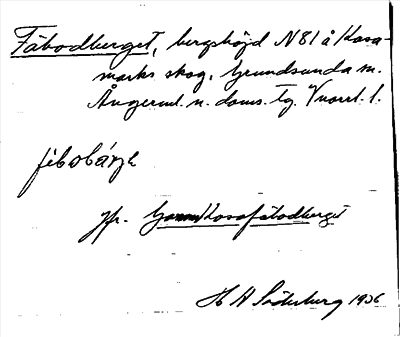 Fäbodberget, bergshöjd N 81 å Kasa-
marks skog, Grundsunda sn.
Ångerml. n. doms. tg. Vnorrl. l.
fèbobárjə
jfr. Kasafäbodberget
H H Söderberg 1936